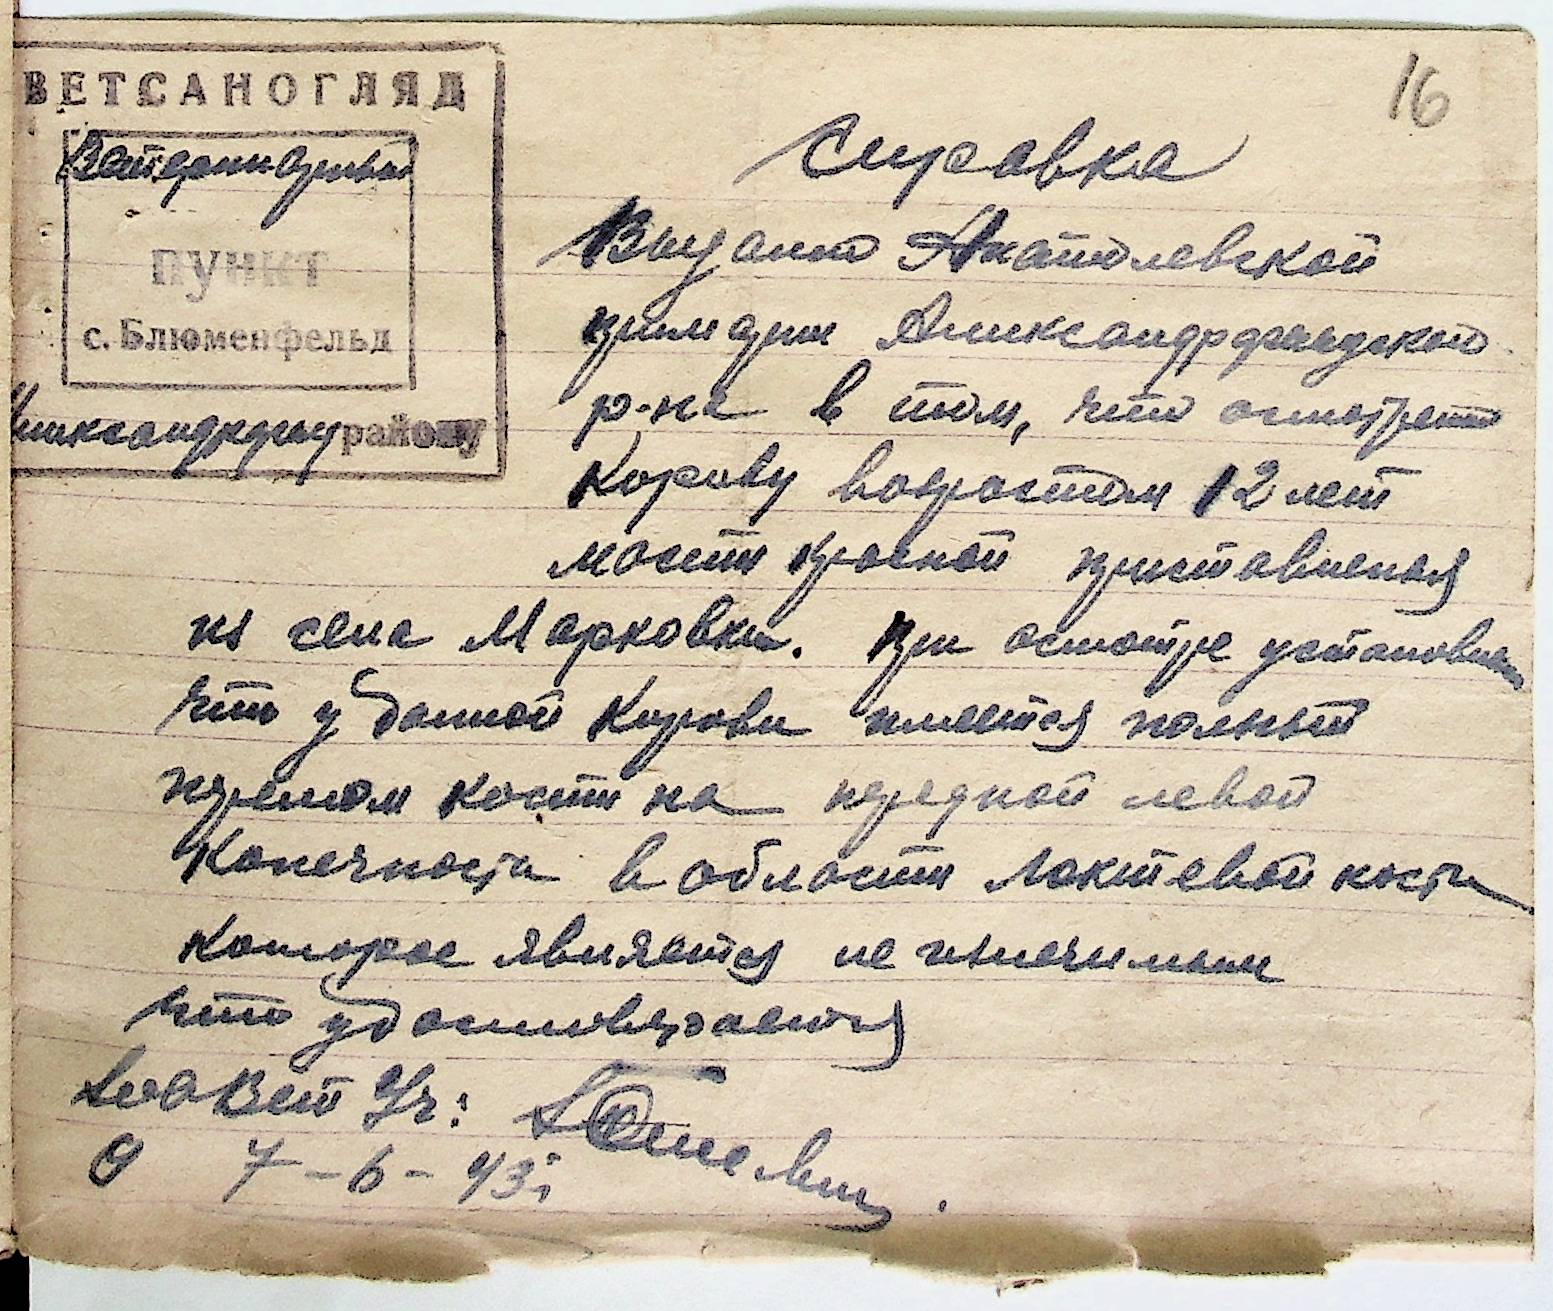 16
ВЕТСАНОГЛЯД
Ветеринарный
ПУНКТ
с. Блюменфельд
району
Справка
Выдано Анатолевской
примэрии Александрфельдского
р-на в том, что осмотрено
Корову возростом 12 лет
масти красной приставленая
из села Марковки. При осмотре установлено
что у данной Корови имеется полный
перелом кости на передной левой
Конечности в области локтевой кости
которое является не излечимым
что удостоверяется
Зав Вет Уч:
7-6-43г